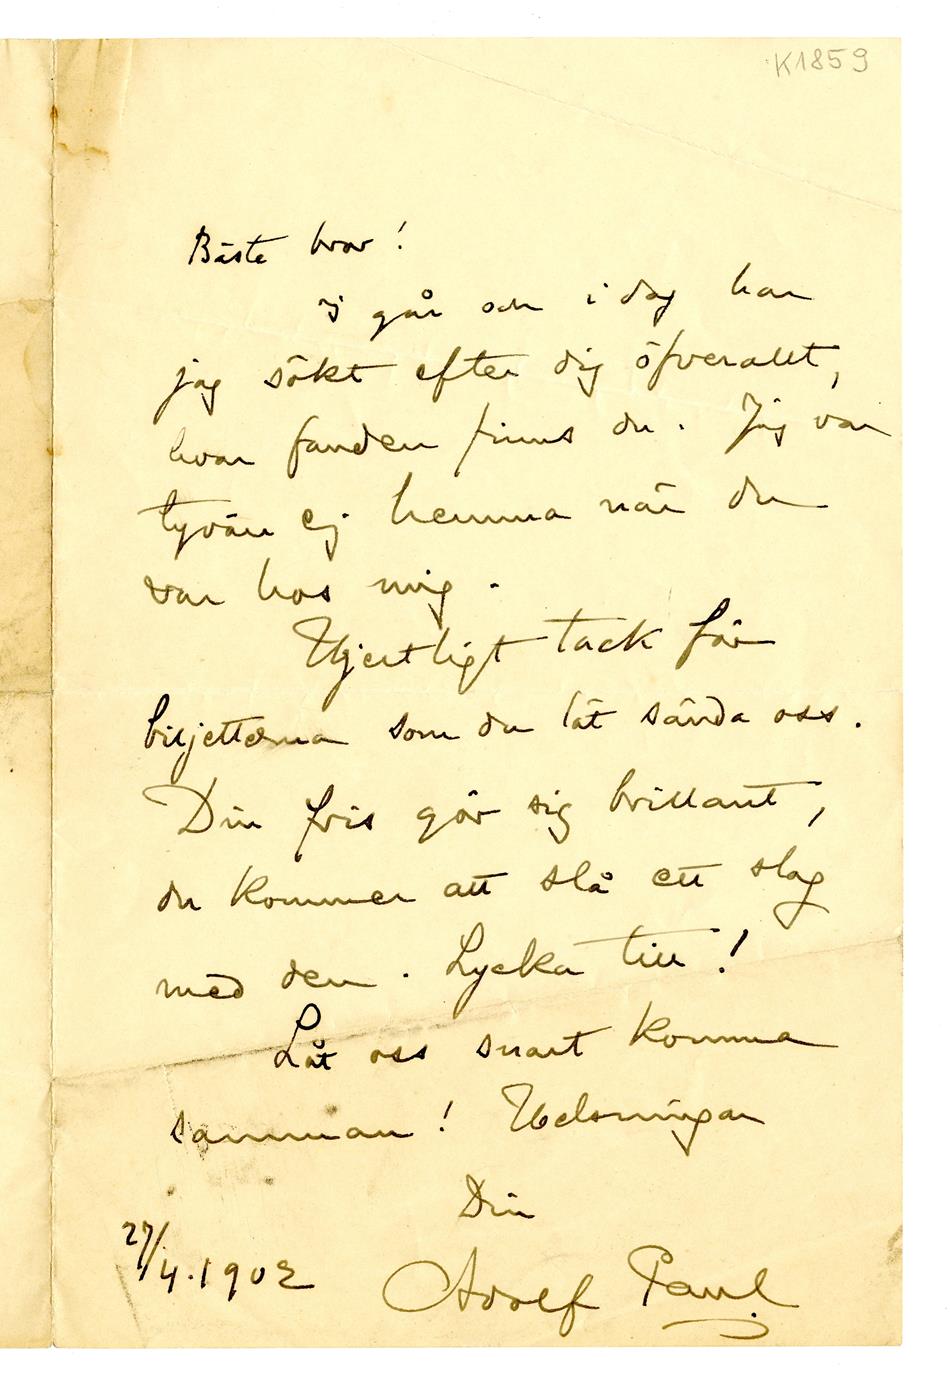 K1859
Bäste bror!
I går och i dag har
jag sökt efter dig öfverallt,
hvar fanden finns du. Jag var
tyvärr ej hemma när du
var hos mig.
Hjertligt tack för
biljetterna som du lät sända oss.
Din fris gör sig brillant,
du kommer att slå ett slag
med den. Lycka till!
Låt oss snart komma
samman! Helsningar
Din
27/4.1902
Adolf Paul